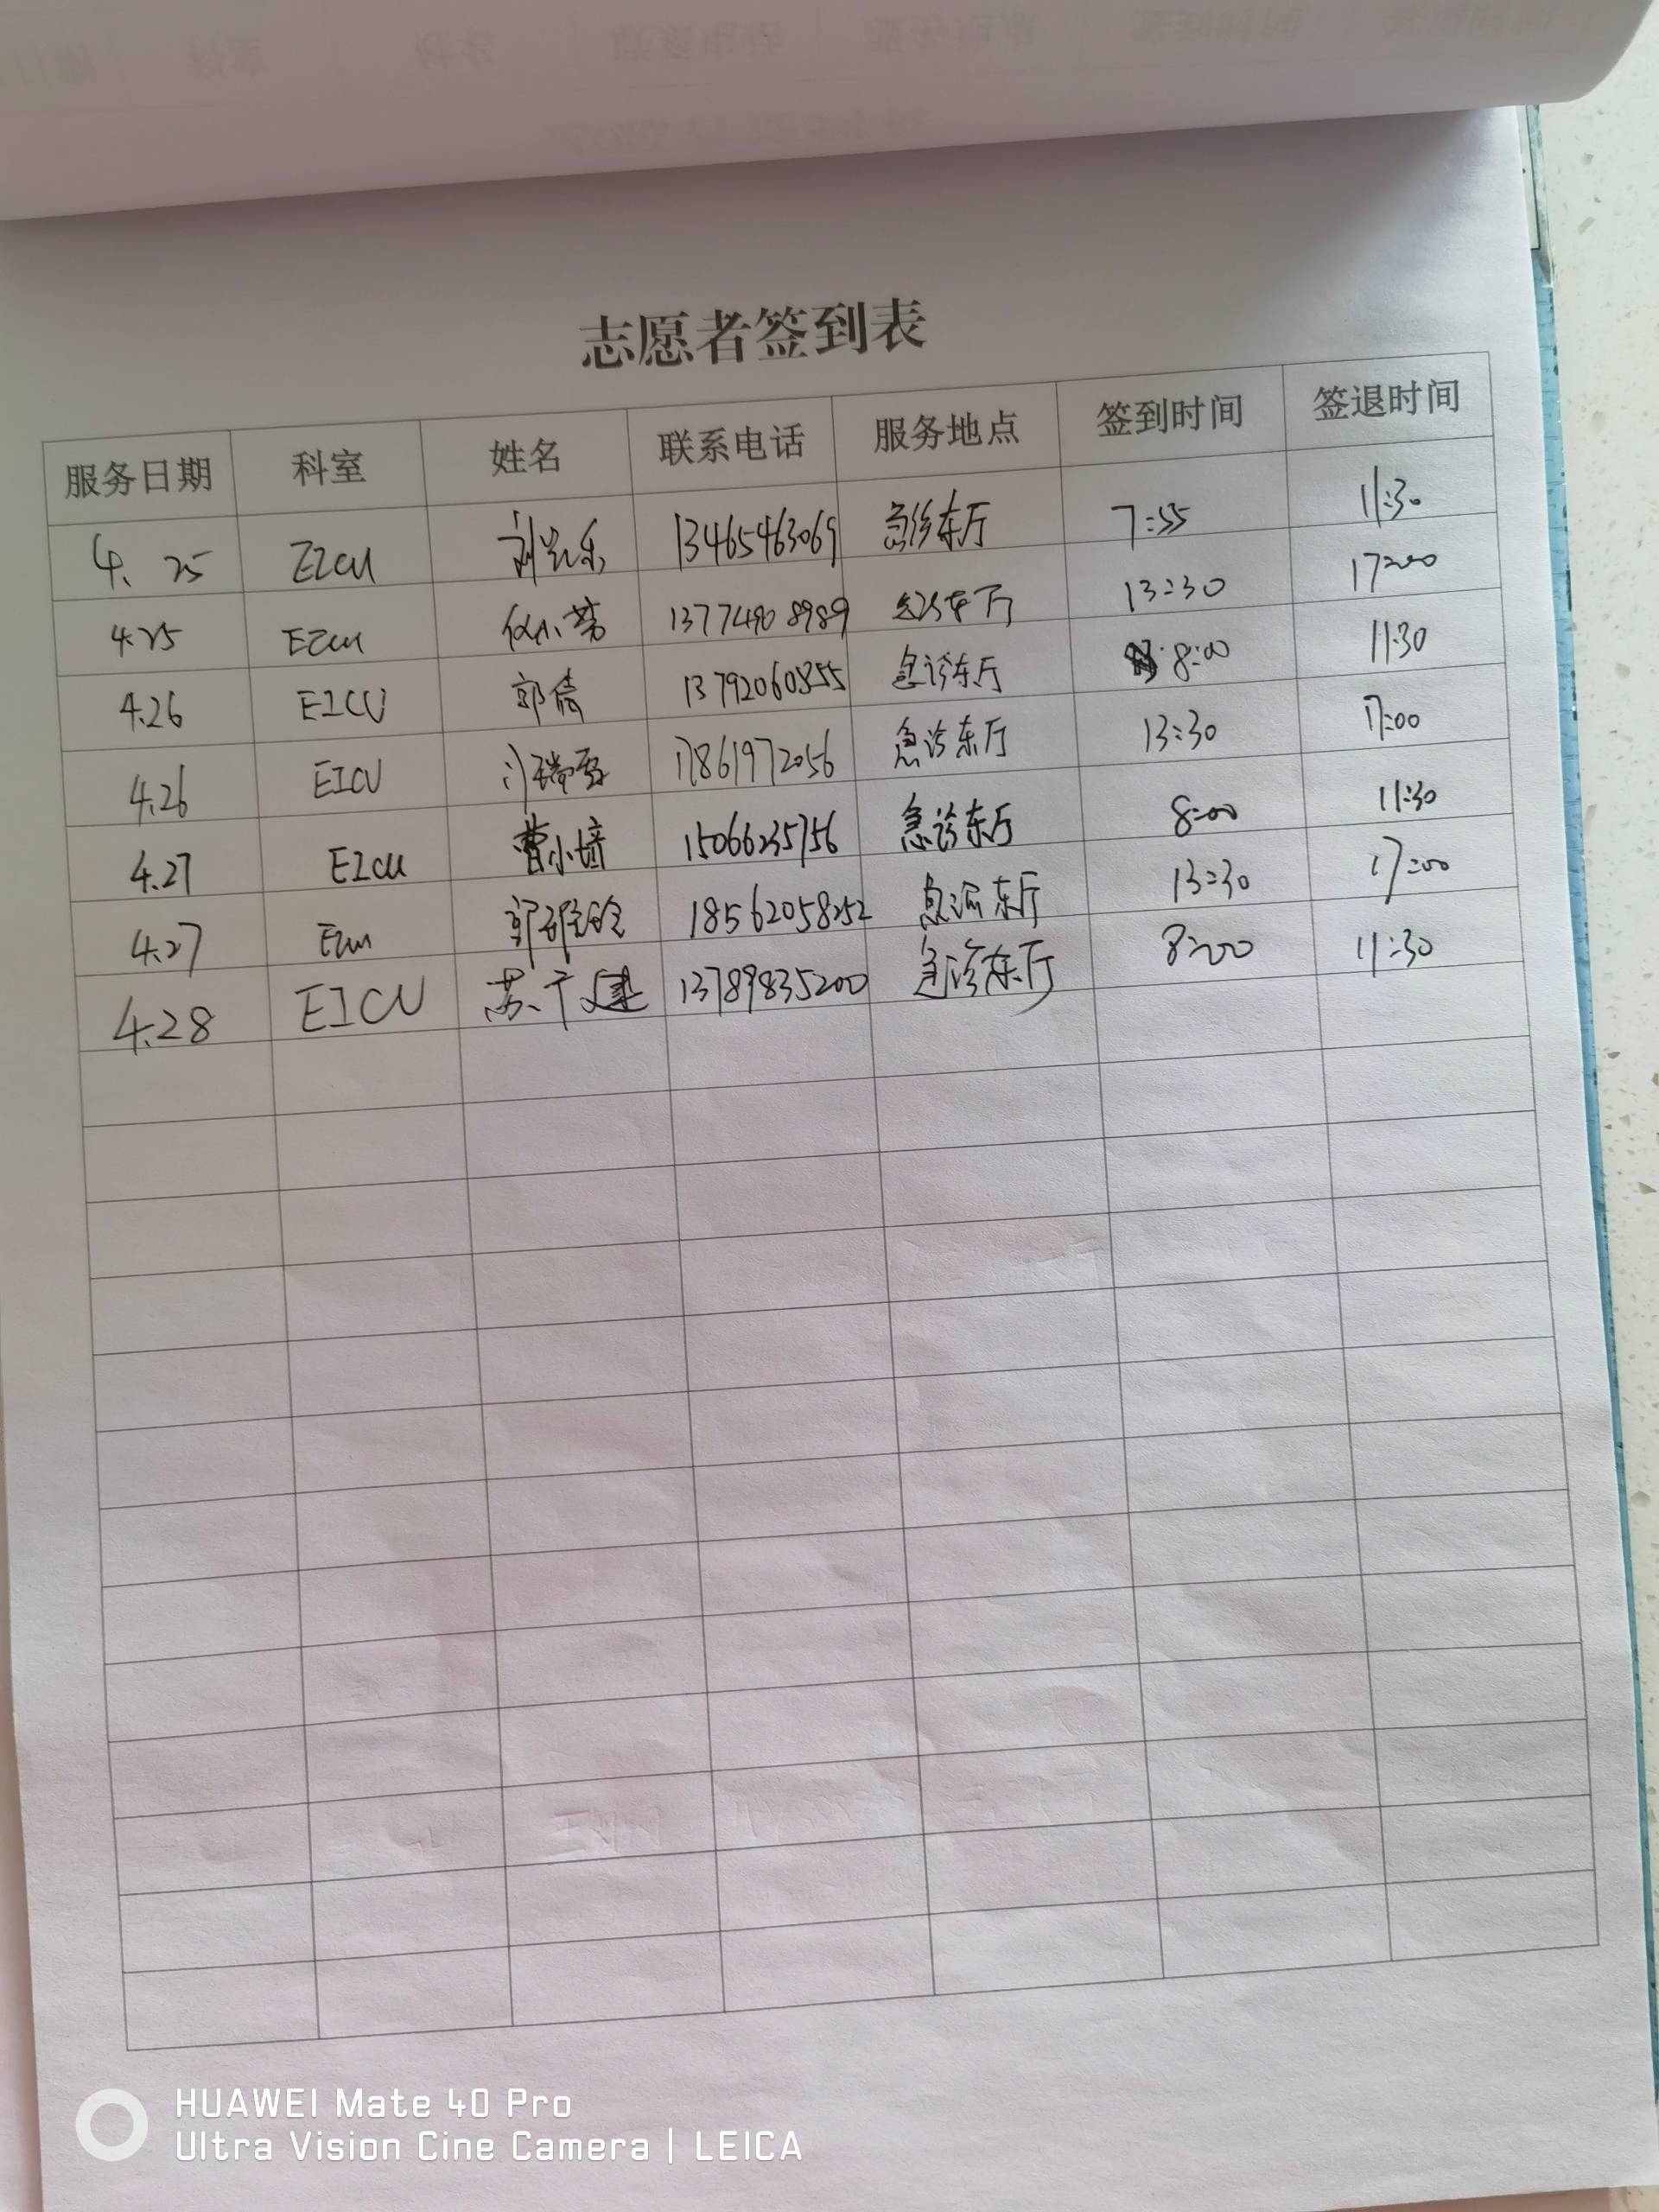 志愿者签到表
服务日期 科室 姓名 联系电话 服务地点 签到时间 签退时间
4.25 EICU 13465463069 急诊东厅 7:55 11:30
4.25 EICU 13774908989 急诊东厅 13:30 17:00
4.26 EICU 郭倩 13792060855 急诊东厅 8:00 11:30
4.26 EICU 17861972056 急诊东厅 13:30 17:00
4.27 EICU 曹小培 15066235756 急诊东厅 8:00 11:30
4.27 EICU 18562058252 急诊东厅 13:30 17:00
4.28 EICU 苏于建 13789835200 急诊东厅 8:00 11:30
HUAWEI Mate 40 Pro
Ultra Vision Cine Camera | LEICA